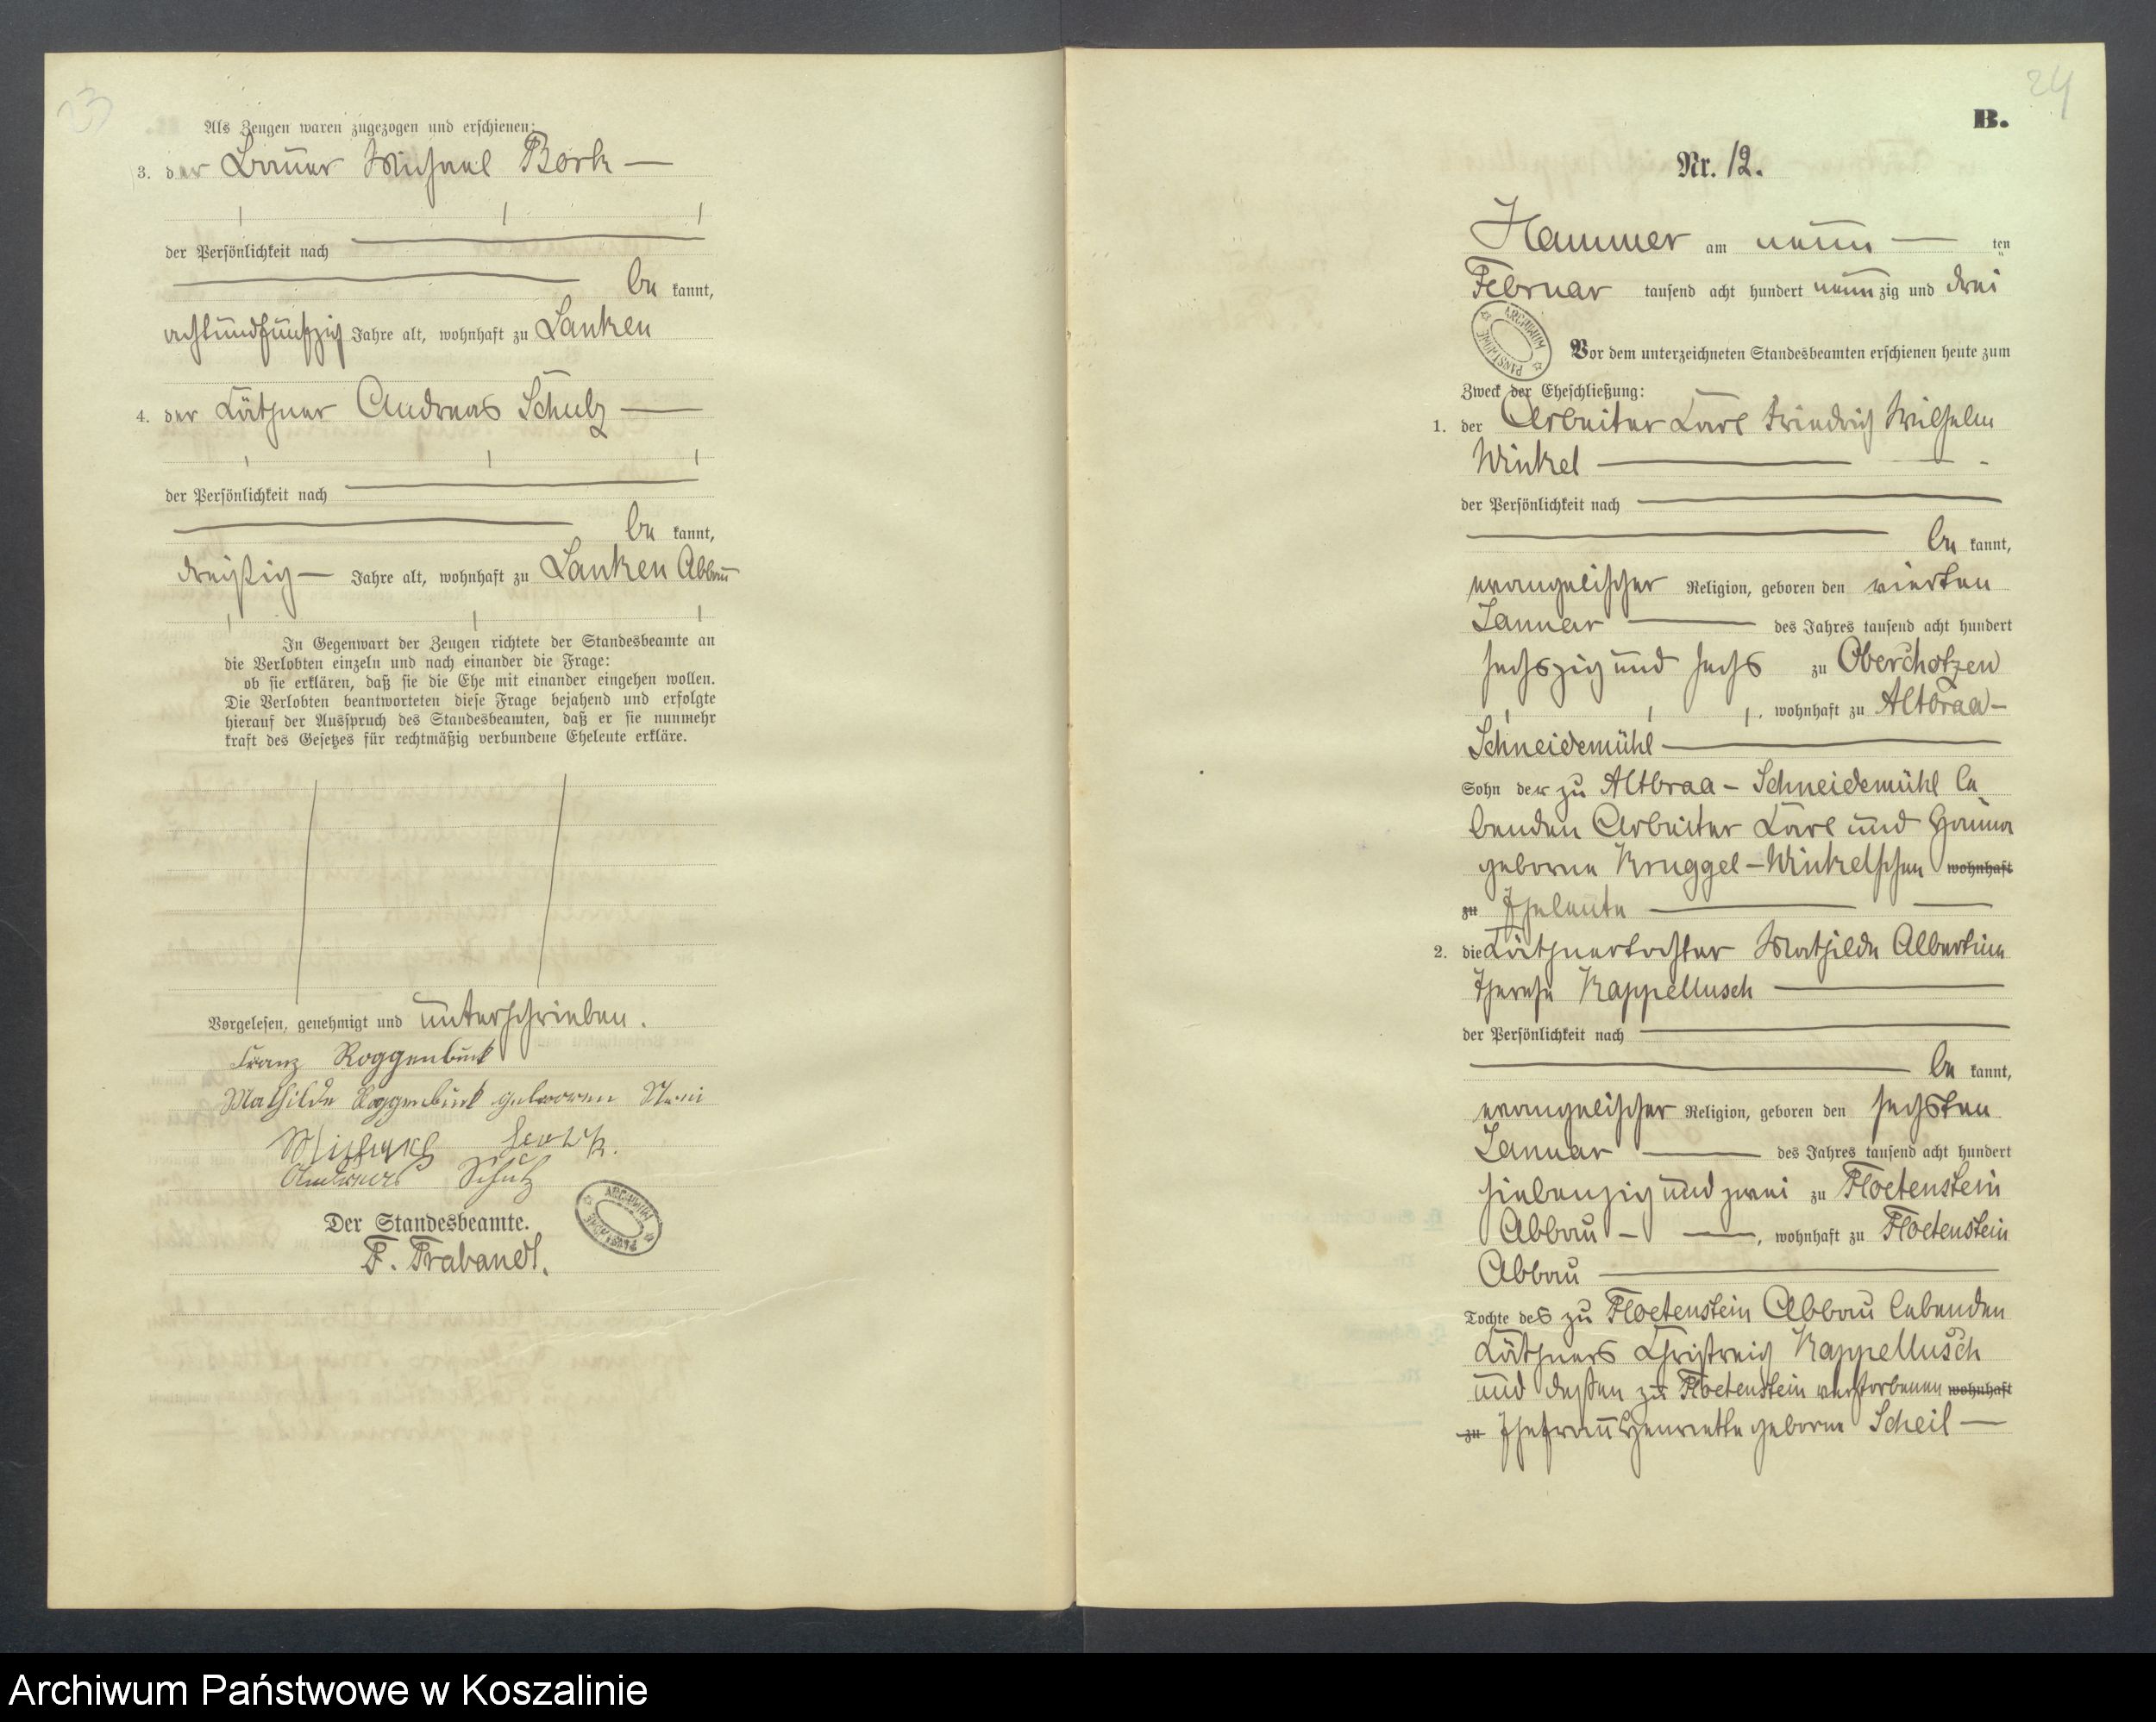 23
Als Zeugen waren zugezogen und erschienen:
3. der Bauer Michael Bork —
der Persönlichkeit nach
be kannt,
achtundfünfzig Jahre alt, wohnhaft zu Lanken
4. der Käthner Andreas Schulz —
der Persönlichkeit nach
be kannt,
dreißig — Jahre alt, wohnhaft zu Lanken Abbau
In Gegenwart der Zeugen richtete der Standesbeamte an
die Verlobten einzeln und nach einander die Frage:
ob sie erklären, daß sie die Ehe mit einander eingehen wollen.
Die Verlobten beantworteten diese Frage bejahend und erfolgte
hierauf der Ausspruch des Standesbeamten, daß er sie nunmehr
kraft des Gesetzes für rechtmäßig verbundene Eheleute erkläre.
Vorgelesen, genehmigt und unterschrieben.
Franz Roggenbuck
Mathilde Roggenbuck geboren
Michael
Andreas Schulz
ARCHIWUM PAŃSTWOWE
Der Standesbeamte.
F. Trabandt.
24
B.
Nr. 12.
Hammer am neun — ten
Februar tausend acht hundert neun zig und drei
ARCHIWUM PAŃSTWOWE
Vor dem unterzeichneten Standesbeamten erschienen heute zum
Zweck der Eheschließung:
1. der Arbeiter Karl Friedrich Wilhelm
Winkel —
der Persönlichkeit nach
be kannt,
evangelischer Religion, geboren den vierten
Januar — des Jahres tausend acht hundert
sechszig und sechs zu Oberchotzen
, wohnhaft zu Altbraa-
Schneidemühl —
Sohn der zu Altbraa - Schneidemühl le
benden Arbeiter Karl und Hanna
geborne Kruggel - Winkelschen wohnhaft
zu Eheleute —
2. die Käthnertochter Mathilde Albertine
Therese Kappellusch —
der Persönlichkeit nach
be kannt,
evangelischer Religion, geboren den sechsten
Januar — des Jahres tausend acht hundert
siebenzig und zwei zu Floetenstein
Abbau - —, wohnhaft zu Floetenstein
Abbau —
Tochte des zu Floetenstein Abbau lebenden
Käthners Christreich Kappellusch
und dessen zu Floetenstein verstorbenen wohnhaft
zu Ehefrau Henriette geborne Scheil —
Archiwum Państwowe w Koszalinie